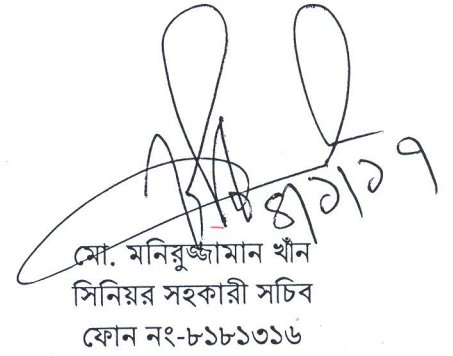 ৪/১/১৭
মো. মনিরুজ্জামান খাঁন
সিনিয়র সহকারী সচিব
ফোন নং-৮১৮১৩১৬